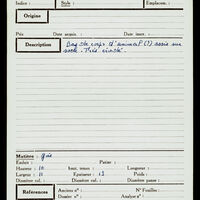 Index : Style : Emplacem. :
Origine
Prix Date acquis. : Date insert. :
Description
Bas de corps d'animal (?) assis sur
socle. Très
Matière : grès
Ember : Patine :
Hauteur : 10 haut. tenon : Longueur :
Largeur : 11 Epaisseur : 13 Poids :
Diamètre : Diamètre col. : Diamètre panse :
Références
Anciens n° : N° Fouilles :
Dossier n° : Analyse n° :